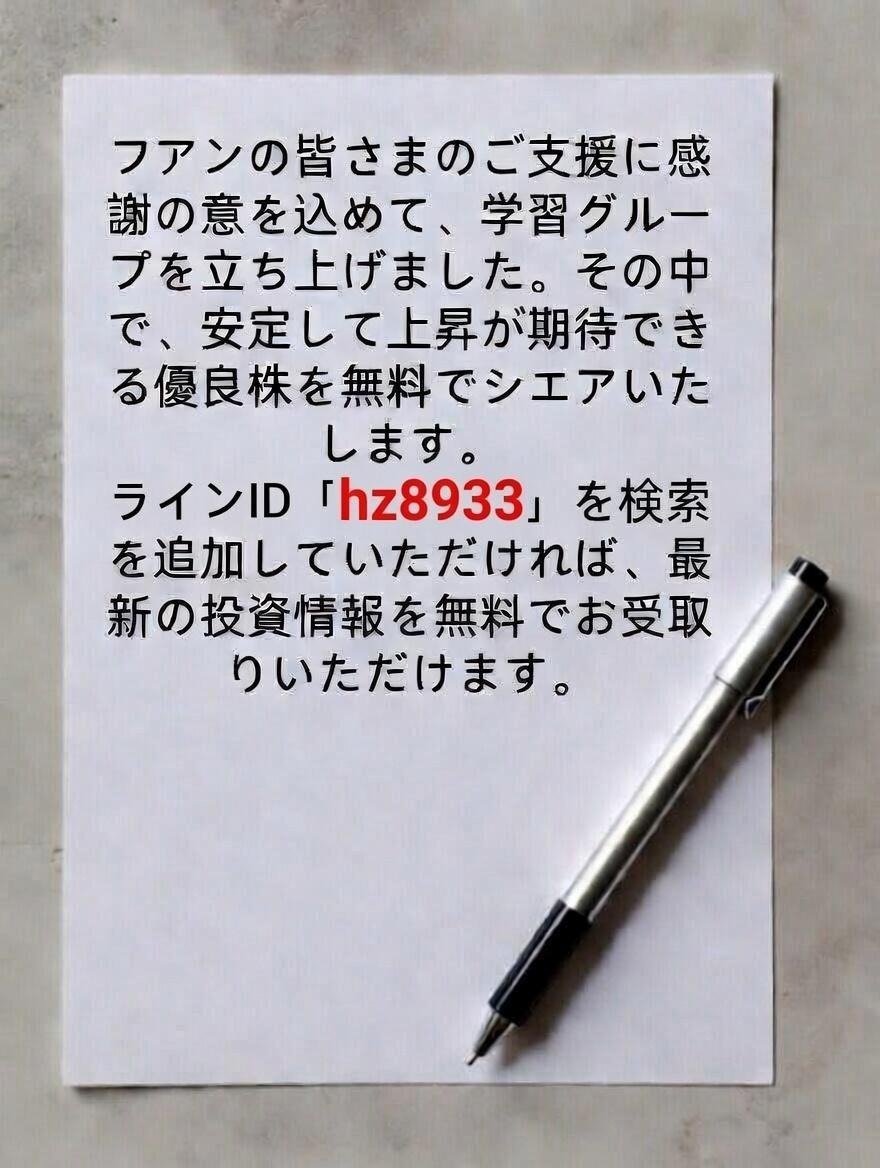 フアンの皆さまのご支援に感
謝の意を込めて、学習グルー
プを立ち上げました。その中
で、安定して上昇が期待でき
る優良株を無料でシエアいた
します。
ラインID「hz8933」を検索
を追加していただければ、最
新の投資情報を無料でお受取
りいただけます。